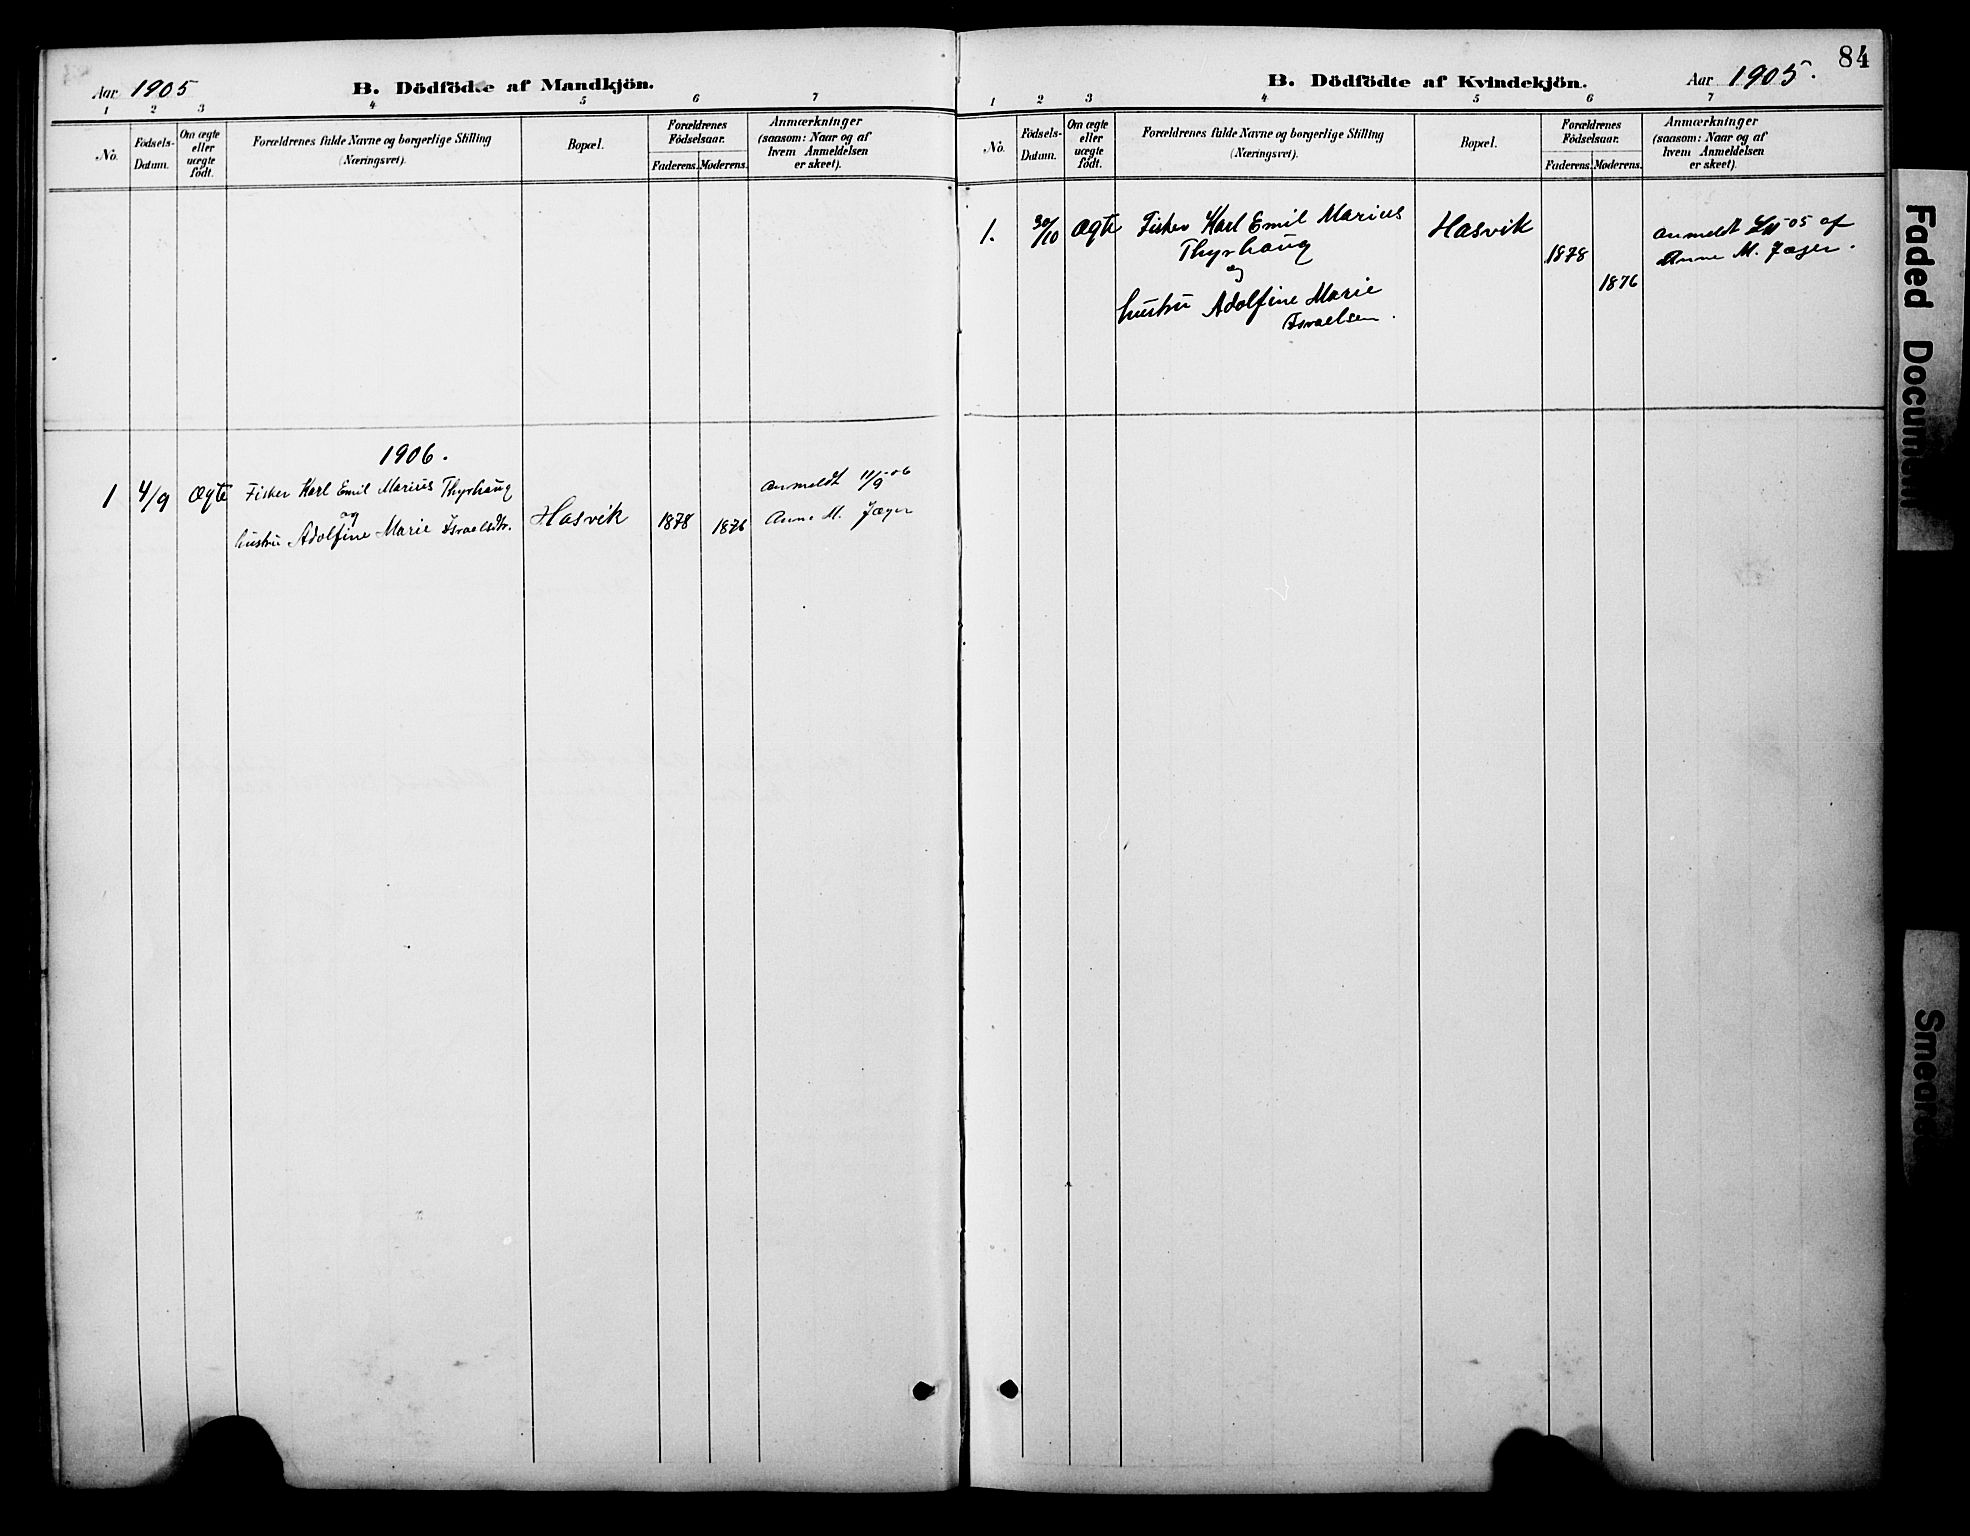 Aar 1905
B. Dödfödte af Mandkjön.
1 2 3 4 5 6 7
No.
Födsels-
Datum.
Om ægte
eller
uægte
födt.
Forældrenes fulde Navne og borgerlige Stilling
(Næringsvei).
Bopæl.
Forældrenes
Födselsaar.
Faderens. Moderens.
Anmærkninger
(saasom: Naar og af
hvem Anmeldelsen
er skeet).
1906.
1 4/9 Ægte Fisker Karl Emil Marius Thyrhaug
og
hustru Adolfine Marie Israelsdtr.
Hasvik 1878 1876
anmeldt 11/9-06
Anne M. Jæger
84
B. Dödfödte af Kvindekjön.
Aar 1905.
1 2 3 4 5 6 7
No.
Födsels-
Datum.
Om ægte
eller
uægte
födt.
Forældrenes fulde Navne og borgerlige Stilling
(Næringsvei).
Bopæl.
Forældrenes
Födselsaar.
Faderens. Moderens.
Anmærkninger
(saasom: Naar og af
hvem Anmeldelsen
er skeet).
1. 30/10 Ægte Fisker Karl Emil Marius
Thyrhaug
og
hustru Adolfine Marie
Israelsen.
Hasvik 1878 1876
anmeldt -05 af
Anne M. Jæger.
Faded Document
Smeared